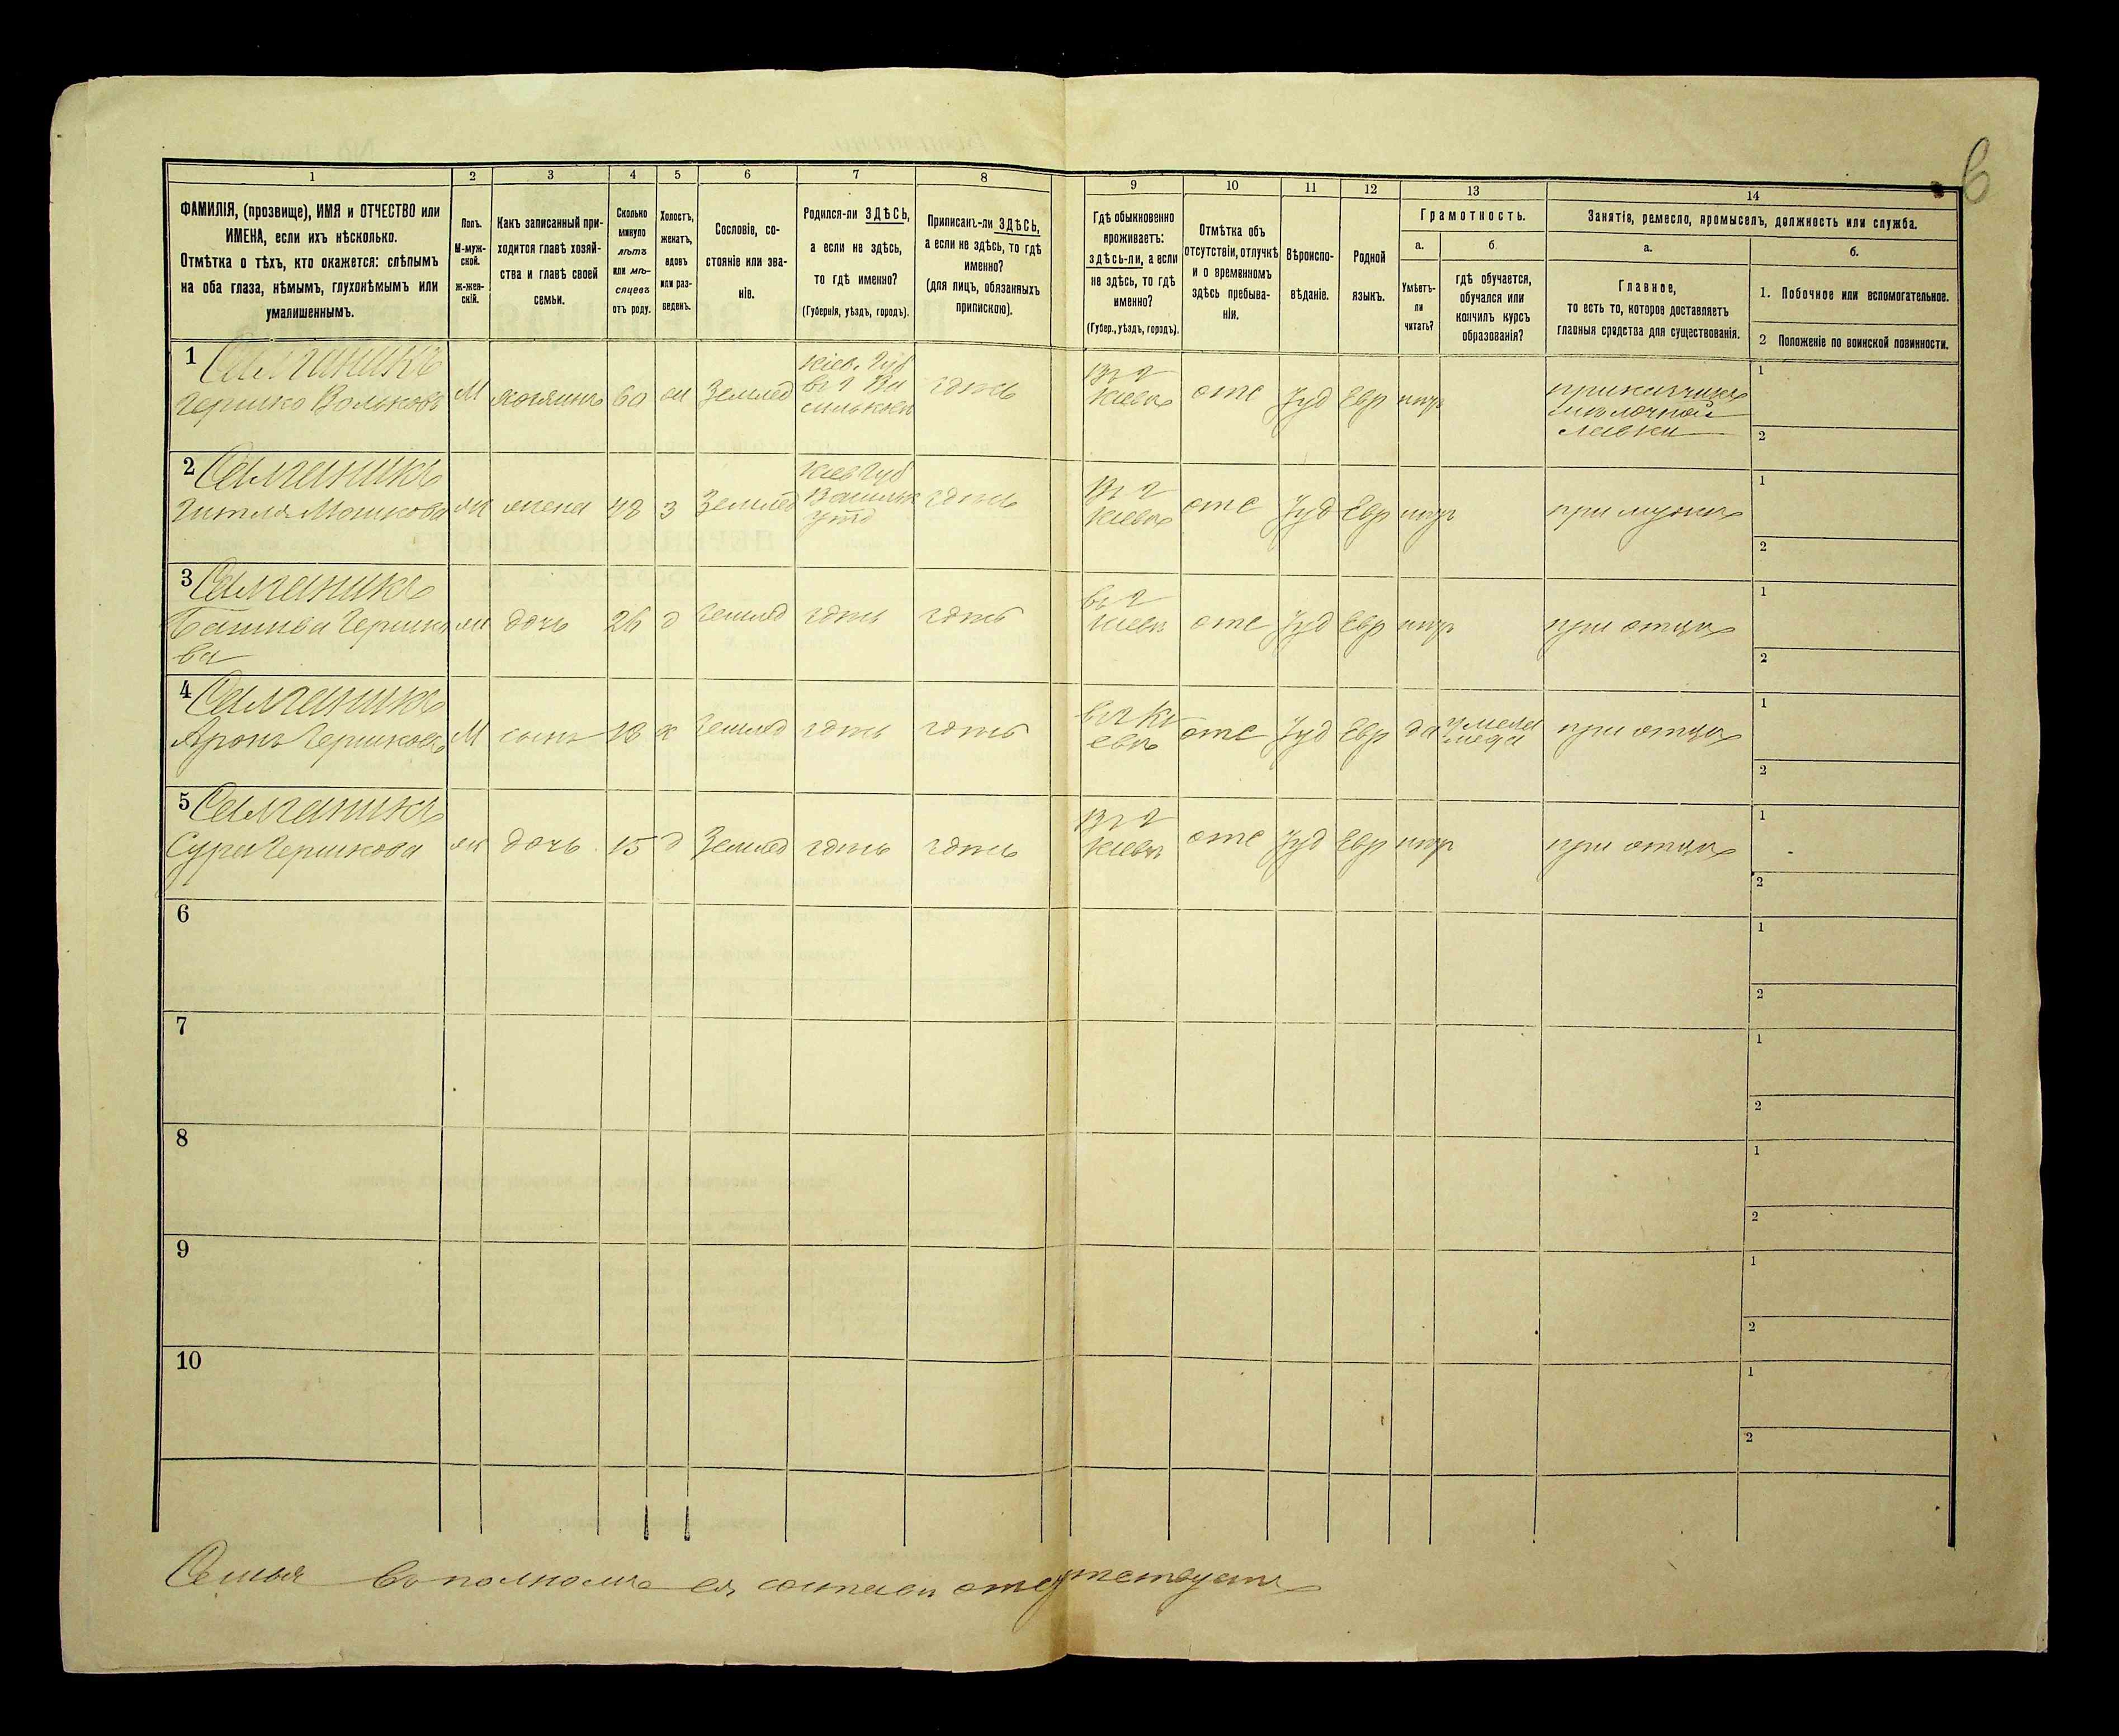 6
1
2
3
4
5
6
7
8
9
10
11
12
13
14
ФАМИЛІЯ, (прозвище), ИМЯ и ОТЧЕСТВО или
ИМЕНА, если ихъ нѣсколько.
Отмѣтка о тѣхъ, кто окажется: слѣпымъ
на оба глаза, нѣмымъ, глухонѣмымъ или
умалишеннымъ.
Полъ.
М-муж-
ской.
ж-жен-
скій.
Какъ записанный при-
ходится главѣ хозяй-
ства и главѣ своей
семьи.
Сколько
минуло
лѣтъ
или мѣ-
сяцевъ
отъ роду.
Холостъ,
женатъ,
вдовъ
или раз-
веденъ.
Сословіе, со-
стояніе или зва-
ніе.
Родился-ли ЗДѢСЬ,
а если не здѣсь,
то гдѣ именно?
(Губернія, уѣздъ, городъ).
Приписанъ-ли ЗДѢСЬ,
а если не здѣсь, то гдѣ
именно?
(для лицъ, обязанныхъ
припискою).
Гдѣ обыкновенно
проживаетъ:
здѣсь-ли, а если
не здѣсь, то гдѣ
именно?
(Губер., уѣздъ, городъ).
Отмѣтка объ
отсутствіи, отлучкѣ
и о временномъ
здѣсь пребыва-
ніи.
Вѣроиспо-
вѣданіе.
Родной
языкъ.
Грамотность.
а.
б.
Умѣетъ-
ли
читать?
гдѣ обучается,
обучался или
кончилъ курсъ
образованія?
Занятія, ремесло, промыселъ, должность или служба.
а.
б.
Главное,
то есть то, которое доставляетъ
главныя средства для существованія.
1. Побочное или вспомогательное.
2 Положеніе по воинской повинности.
1
Гершко Вольковъ
М
хозяинъ
60
Землед
Кіев. Губ
здѣсь
Въ г
Кіевѣ
отс
Іуд
Евр
нѣтъ
прикащикъ
молочной
лавки
1
2
2
Гитля Мошкова
ж
жена
48
з
Землед
Кіев Губ
Васильк
уѣзд
здѣсь
Въ г
Кіевѣ
отс
Іуд
Евр
нѣтъ
при мужѣ
1
2
3
Гершко
ва
ж
дочь
26
д
Землед
здѣсь
здѣсь
въ г
Кіевѣ
отс
Іуд
Евр
нѣтъ
при отцѣ
1
2
4
Аронъ Гершковъ
М
сынъ
18
х
Землед
здѣсь
здѣсь
въ г Кі
евѣ
отс
Іуд
Евр
да
при отцѣ
1
2
5
Сура Гершкова
ж
дочь
15
д
Землед
здѣсь
здѣсь
Въ г
Кіевѣ
отс
Іуд
Евр
нѣтъ
при отцѣ
1
2
6
1
2
7
1
2
8
1
2
9
1
2
10
1
2
Семья въ полномъ ея составѣ отсутствуетъ